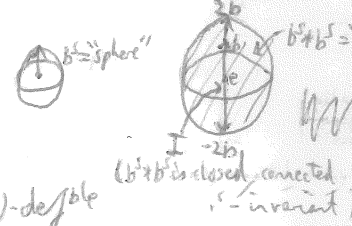 2b
b^s = "sphere"
b^s * b^s =
e
I
-2b
(b^s * b^s is closed connected
)-def ble
s-invariant